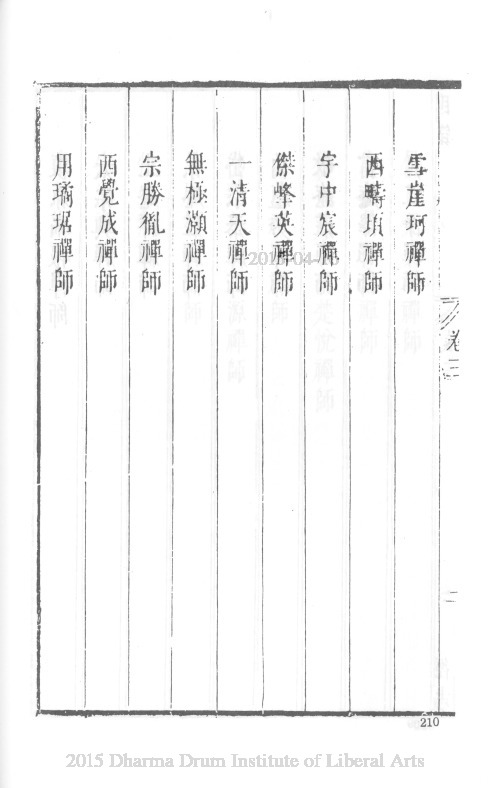 雪崖珂禪師
西疇頊禪師
宇中宸禪師
傑峰英禪師
一清天禪師
無極灝禪師
宗勝胤禪師
西覺成禪師
用璚琚禪師
卷三
二
210
2015 Dharma Drum Institute of Liberal Arts